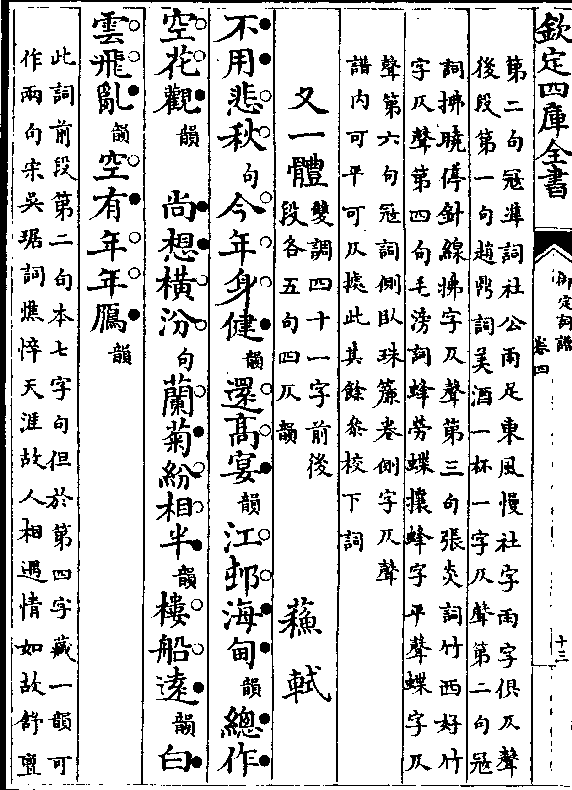 欽定四庫全書
御定詞譜
卷四
十三
第二句冦準詞社公雨足東風慢社字雨字俱仄聲
後段第一句趙鼎詞美酒一杯一字仄聲第二句冦
詞拂曉停針線拂字仄聲第三句張炎詞竹西好竹
字仄聲第四句毛滂詞蜂勞蝶攘蜂字平聲蝶字仄
聲第六句冦詞側臥珠簾卷側字仄聲
譜内可平可仄據此其餘參校下詞
又一體
雙調四十一字前後
段各五句四仄韻
蘓軾
不用悲秋句今年身健韻還髙宴韻江邨海甸韻總作
空花觀韻 尚想橫汾句蘭菊紛相半韻樓船逺韻白
雲飛亂韻空有年年鴈韻
此詞前段第二句本七字句但於第四字藏一韻可
作兩句宋吳琚詞憔悴天涯故人相遇情如故舒亶